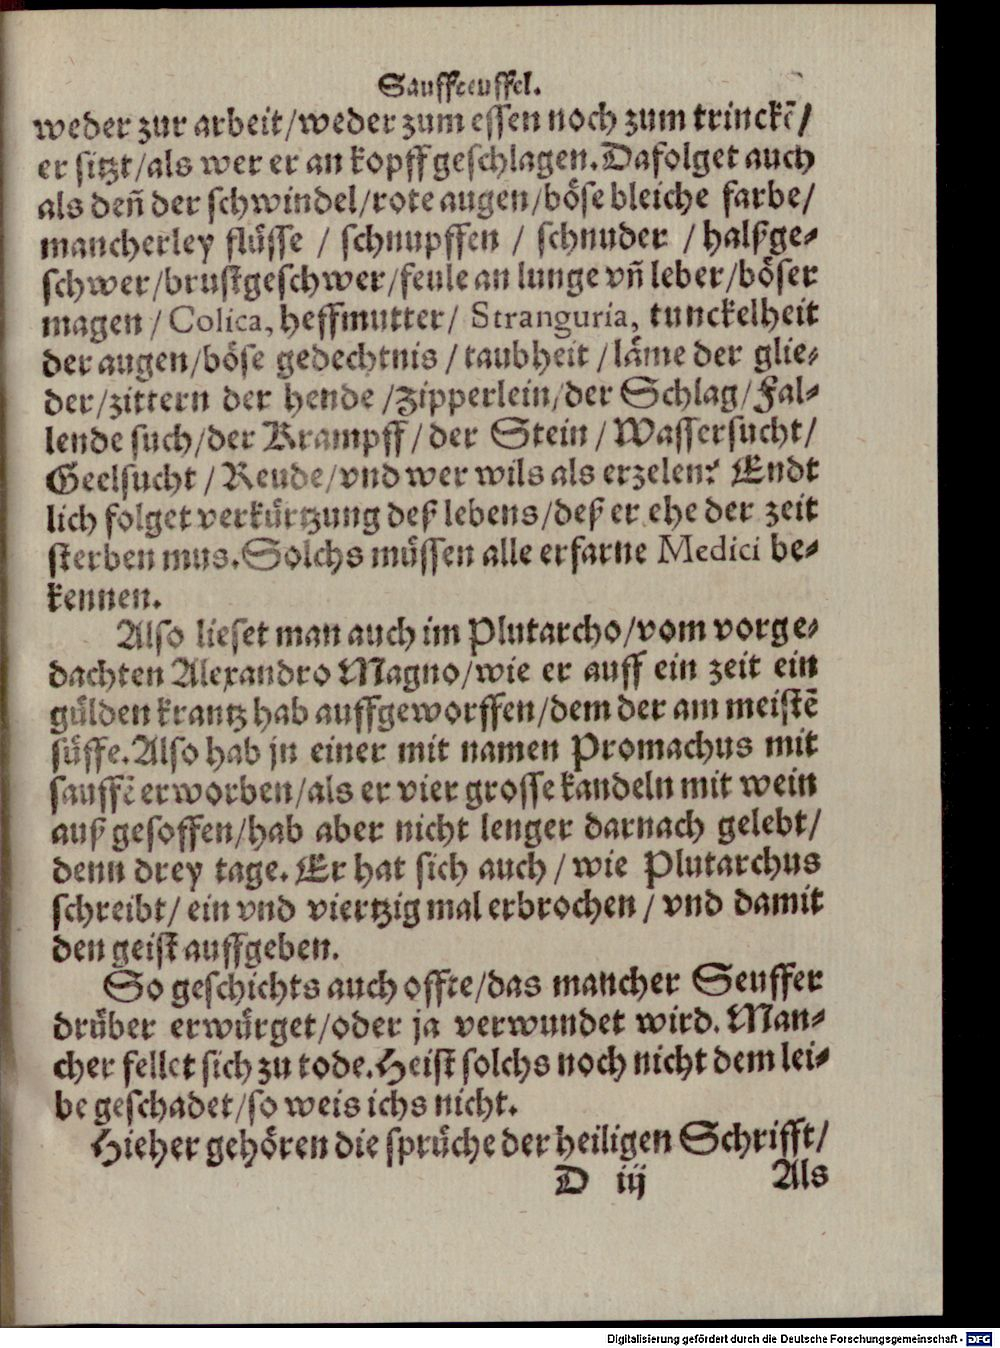 Sauffteuffel.
weder zur arbeit/weder zum essen noch zum trinckē/
er sitzt/als wer er an kopff geschlagen. Da folget auch
als deñ der schwindel/rote augen/böse bleiche farbe/
mancherley flüsse / schnupffen / schnuder / halßge-
schwer/brustgeschwer/feule an lunge vñ leber/böser
magen / Colica, heffmutter/ Stranguria, tunckelheit
der augen/böse gedechtnis / taubheit / läme der glie-
der/zittern der hende /Zipperlein/der Schlag/Fal-
lende such/der Krampff/der Stein / Wassersucht/
Geelsucht / Reude/vnd wer wils als erzelen? Endt
lich folget verkürtzung deß lebens/deß er ehe der zeit
sterben mus. Solchs müssen alle erfarne Medici be-
kennen.
Also lieset man auch im Plutarcho/vom vorge-
dachten Alexandro Magno/wie er auff ein zeit ein
gülden krantz hab auffgeworffen/dem der am meistē
süffe. Also hab jn einer mit namen Promachus mit
sauffē erworben/als er vier grosse kandeln mit wein
auß gesoffen/hab aber nicht lenger darnach gelebt/
denn drey tage. Er hat sich auch / wie Plutarchus
schreibt/ ein vnd viertzig mal erbrochen / vnd damit
den geist auffgeben.
So geschichts auch offte/das mancher Seuffer
drüber erwürget/oder ja verwundet wird. Man-
cher fellet sich zu tode. Heist solchs noch nicht dem lei-
be geschadet/so weis ichs nicht.
Hieher gehören die sprüche der heiligen Schrifft/
D iij Als
Digitalisierung gefördert durch die Deutsche Forschungsgemeinschaft - DFG